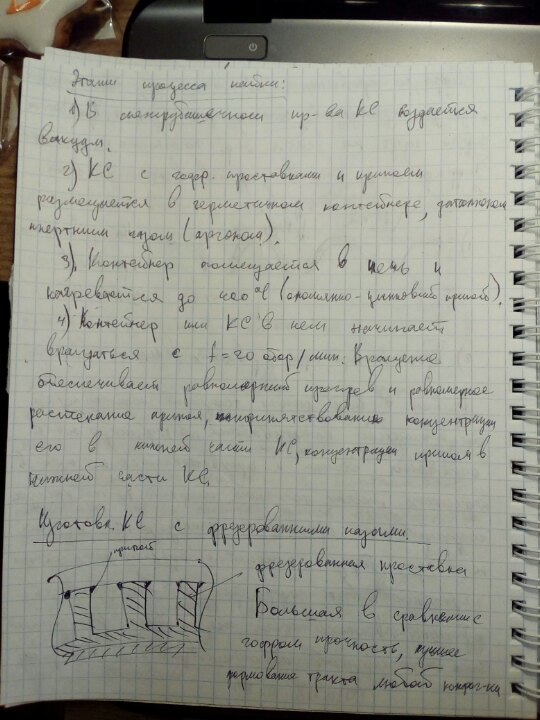 Этапы процесса пайки:
1) В межрубашечном пр-ве КС создается
вакуум.
2) КС с гофр. проставками и припоем
размещается в герметичном контейнере,
инертным газом (аргоном).
3) Контейнер помещается в печь и
нагревается до (оловянно-цинковый припой).
4) Контейнер или КС в нем начинает
вращаться с f=20 обор/мин. Вращение
обеспечивает равномерный прогрев и равномерное
растекание припоя, концентрации
его в нижней части КС, концентрации припоя в
нижней части КС.
Изготовл. КС с фрезерованными пазами.
припой
фрезерованная проставка
Большая в сравнение с
гофром прочность, лучшее
тракта любой